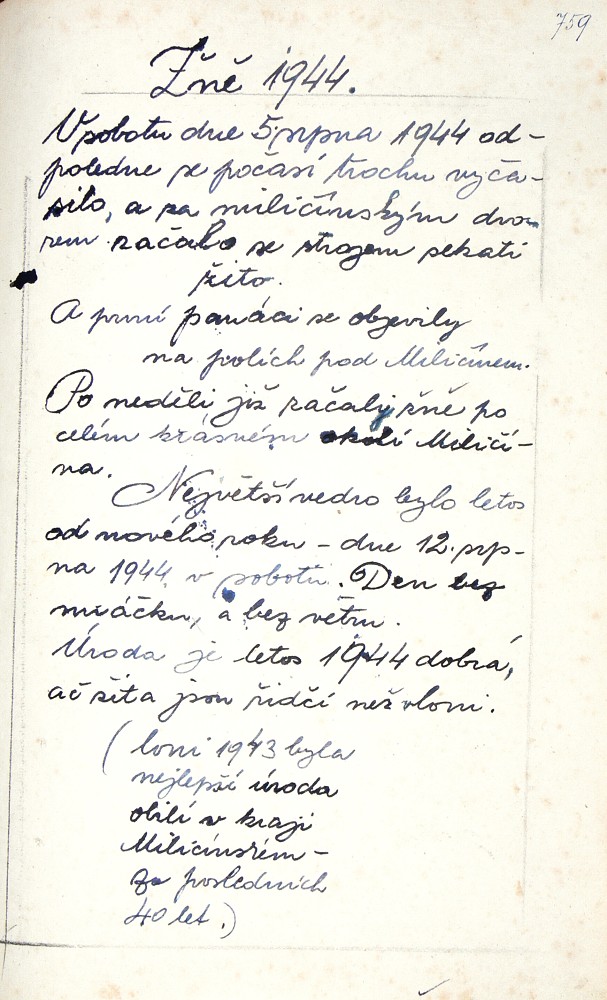 759
Žně 1944.
V sobotu dne 5 srpna 1944 od-
poledne se počasí trochu vyča-
silo, a za miličínským dvo-
rem začalo se strojem sekati
žito.
A první panáci se objevily
na polích pod Miličínem.
Po neděli již začaly žně po
celém krásném okolí Miličí-
na.
Největší vedro bylo letos
od nového roku – dne 12. srp-
na 1944 v sobotu. Den bez
mráčku, a bez větru.
Úroda je letos 1944 dobrá,
ač žita jsou řidčí než vloni.
(loni 1943 byla
nejlepší úroda
obilí v kraji
Miličínském –
za posledních
40 let.)